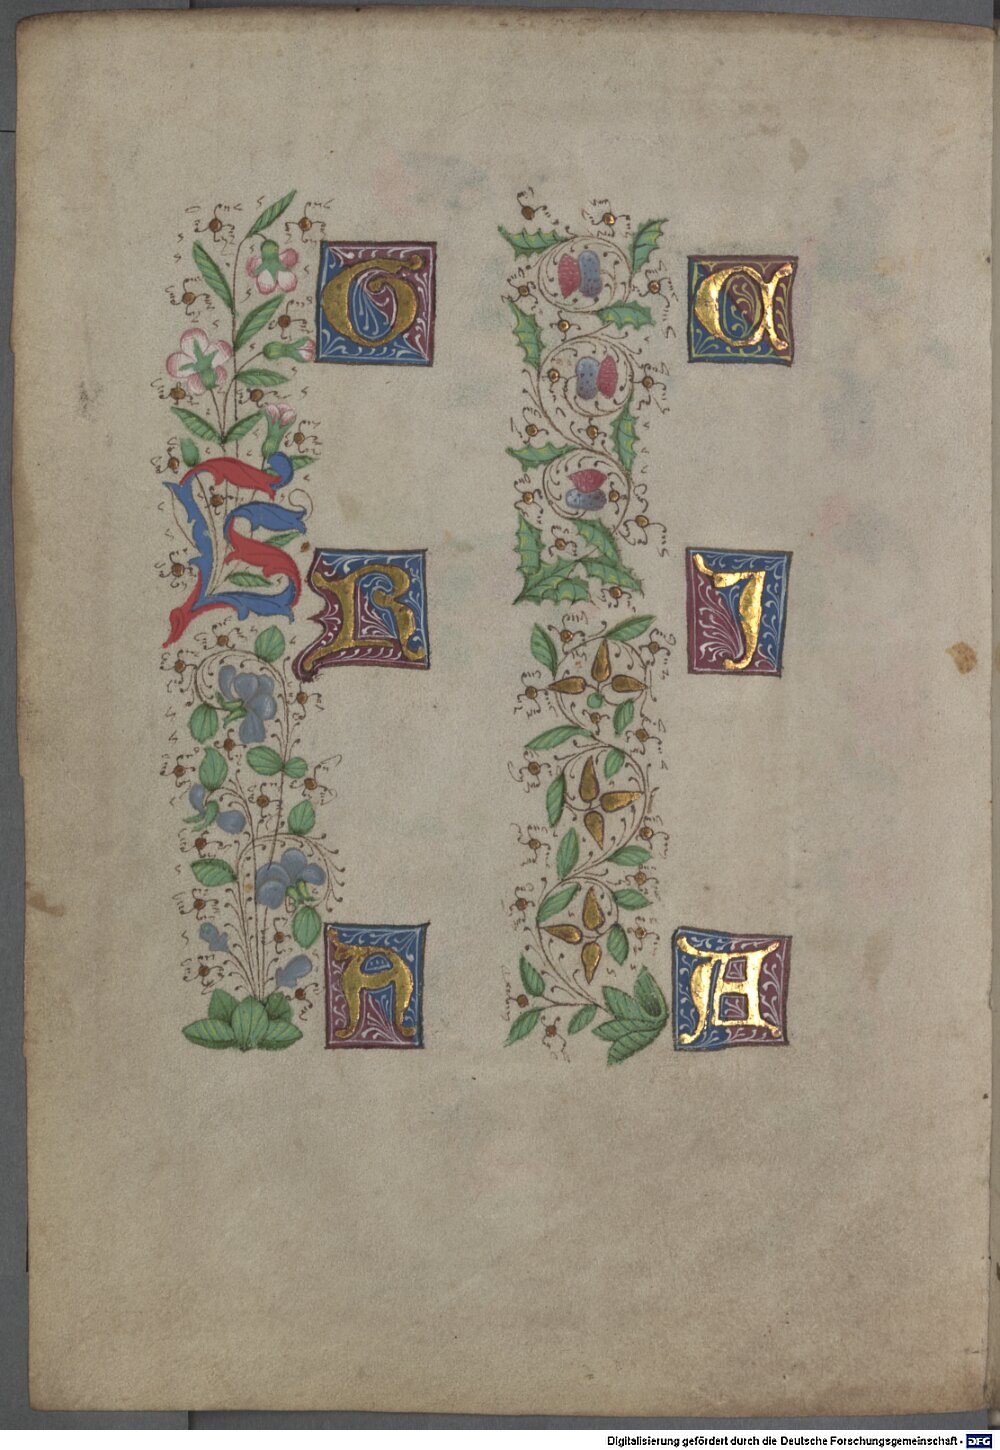 G
a
B
I
A
A
Digitalisierung gefördert durch die Deutsche Forschungsgemeinschaft - DFG